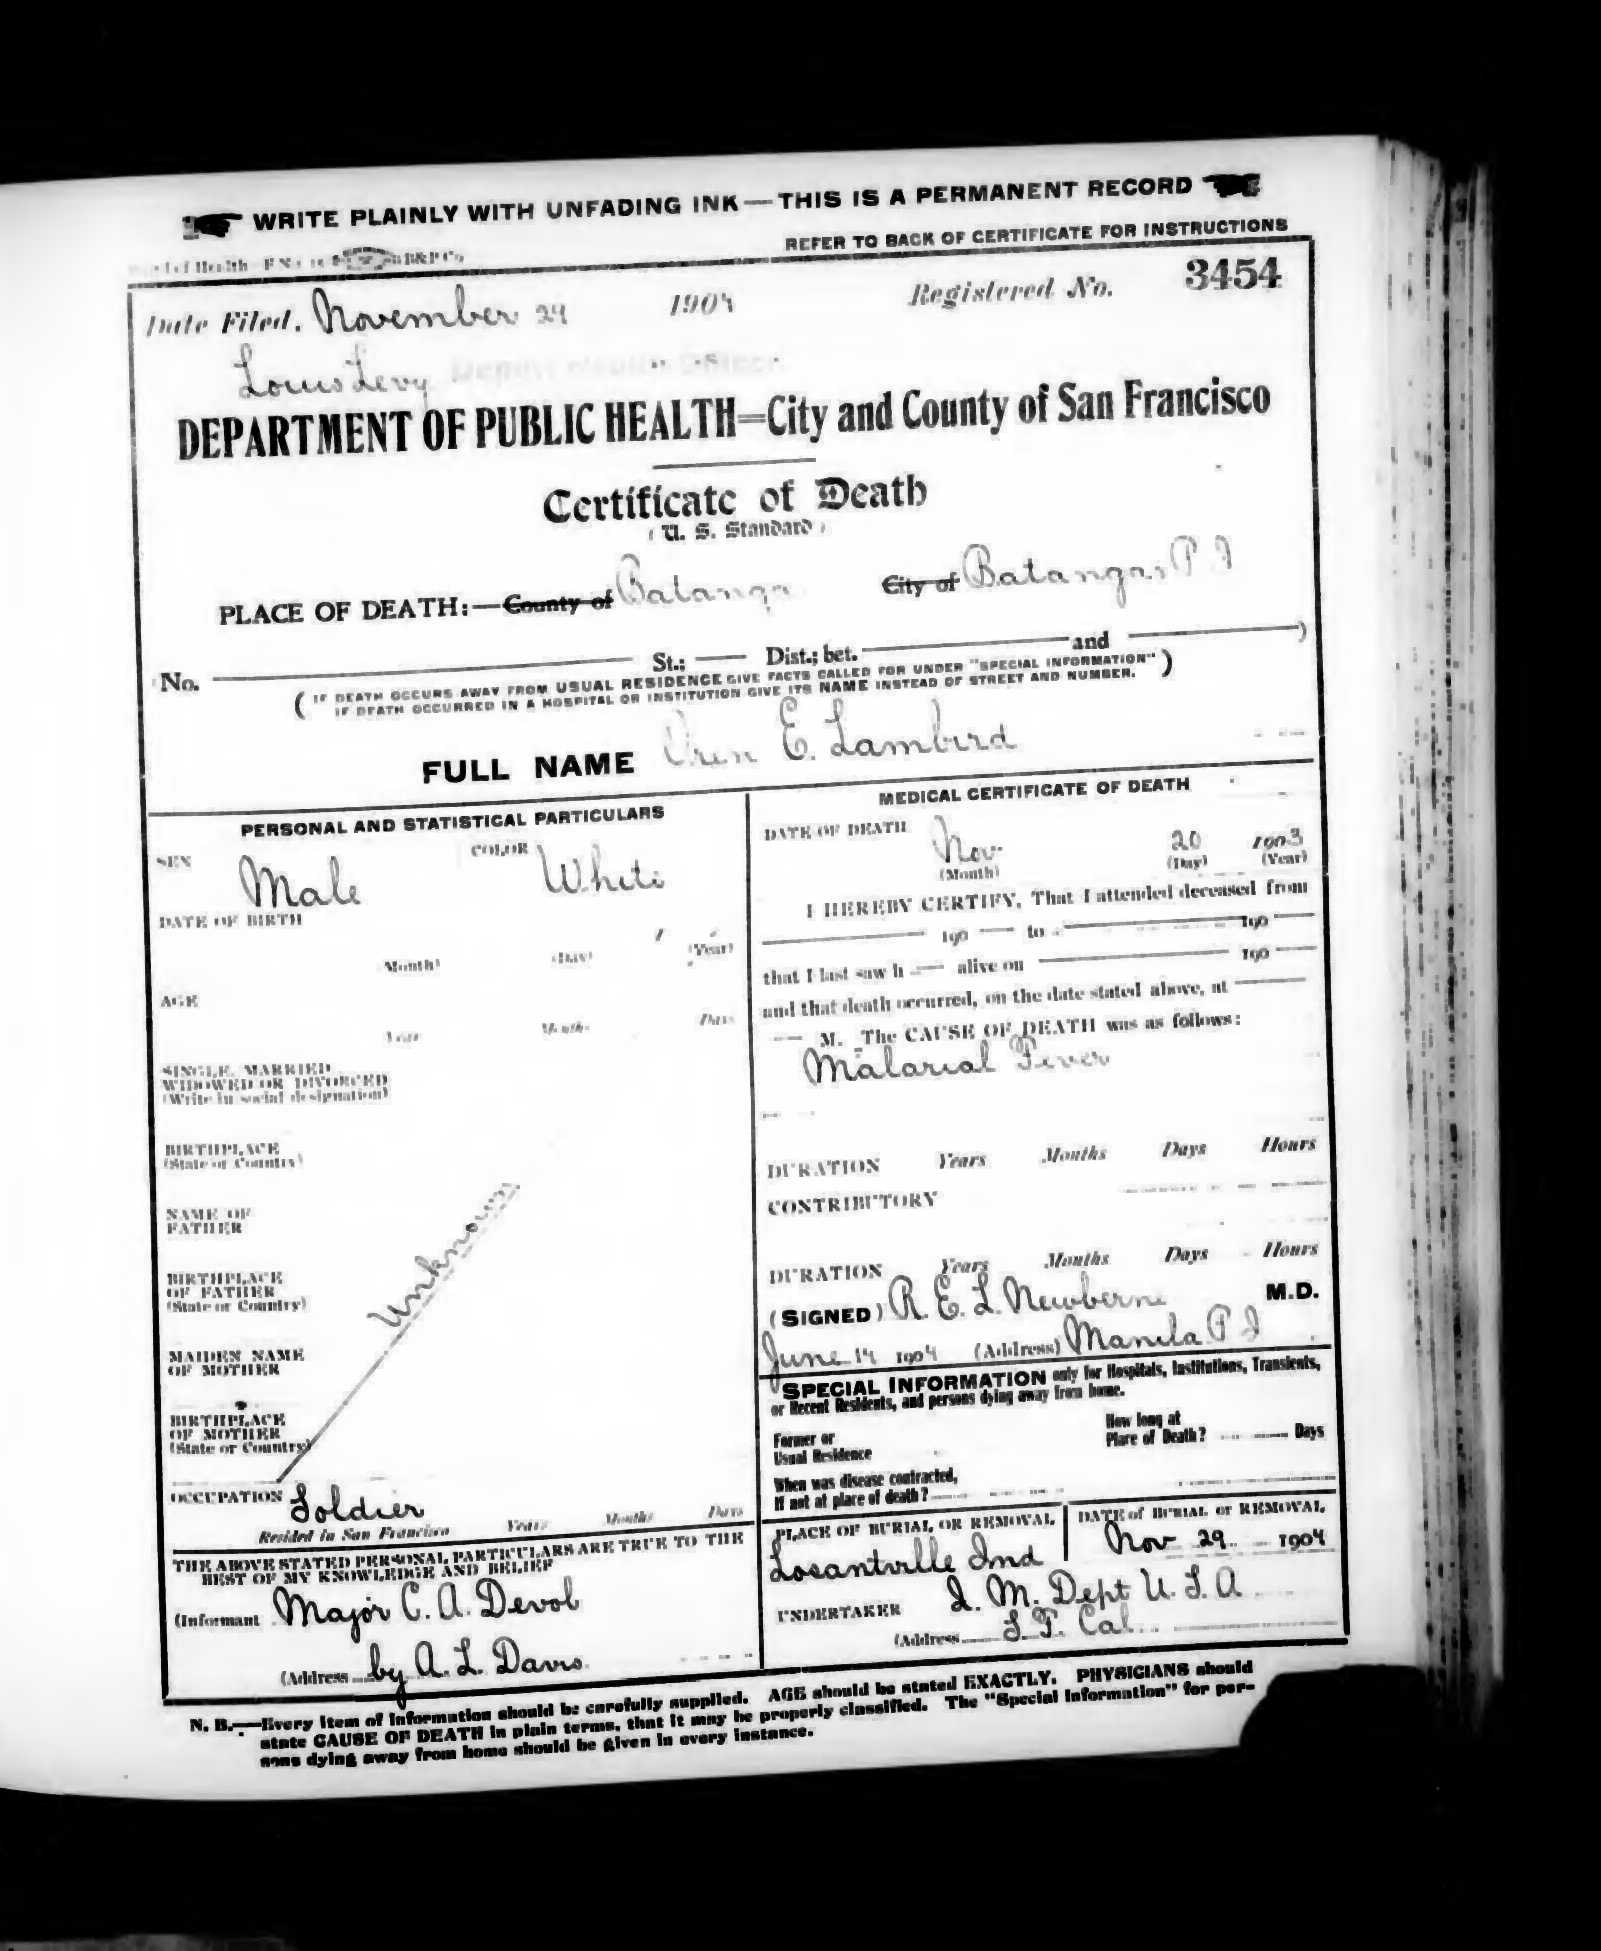 WRITE PLAINLY WITH UNFADING INK — THIS IS A PERMANENT RECORD
REFER TO BACK OF CERTIFICATE FOR INSTRUCTIONS
of Health B&P Co
Date Filed, November 29 1904 Registered No. 3454
Louis Levy Deputy Health Officer
DEPARTMENT OF PUBLIC HEALTH=City and County of San Francisco
Certificate of Death
(U. S. Standard)
PLACE OF DEATH:—County of Batanga City of Batangas P I
No. St.; Dist.; bet. and )
( IF DEATH OCCURS AWAY FROM USUAL RESIDENCE GIVE FACTS CALLED FOR UNDER "SPECIAL INFORMATION" )
IF DEATH OCCURRED IN A HOSPITAL OR INSTITUTION GIVE ITS NAME INSTEAD OF STREET AND NUMBER.
FULL NAME Oren E. Lambird
PERSONAL AND STATISTICAL PARTICULARS
SEX Male COLOR White
DATE OF BIRTH
(Month) (Day) (Year)
AGE
Years Months Days
SINGLE, MARRIED
WIDOWED OR DIVORCED
(Write in social designation)
BIRTHPLACE
(State or Country)
NAME OF
FATHER
Unknown
BIRTHPLACE
OF FATHER
(State or Country)
MAIDEN NAME
OF MOTHER
BIRTHPLACE
OF MOTHER
(State or Country)
OCCUPATION Soldier
Resided in San Francisco Years Months Days
THE ABOVE STATED PERSONAL PARTICULARS ARE TRUE TO THE
BEST OF MY KNOWLEDGE AND BELIEF
(Informant Major C. A. Devol
(Address by A. L. Davis
MEDICAL CERTIFICATE OF DEATH
DATE OF DEATH Nov. 20 1903
(Month) (Day) (Year)
I HEREBY CERTIFY, That I attended deceased from
190 to 190
that I last saw h alive on 190
and that death occurred, on the date stated above, at
M. The CAUSE OF DEATH was as follows:
Malarial Fever
DURATION Years Months Days Hours
CONTRIBUTORY
DURATION Years Months Days Hours
(SIGNED) R. E. L. Newberne M.D.
June 14 1904 (Address) Manila P I
SPECIAL INFORMATION only for Hospitals, Institutions, Transients,
or Recent Residents, and persons dying away from home.
Former or
Usual Residence
How long at
Place of Death? Days
When was disease contracted,
If not at place of death?
PLACE OF BURIAL OR REMOVAL
Losantville Ind
DATE of BURIAL or REMOVAL
Nov 29 1904
UNDERTAKER Q. M. Dept U. S. A
(Address S. F. Cal.
N. B.—Every item of information should be carefully supplied. AGE should be stated EXACTLY. PHYSICIANS should
state CAUSE OF DEATH in plain terms, that it may be properly classified. The "Special Information" for per-
sons dying away from home should be given in every instance.